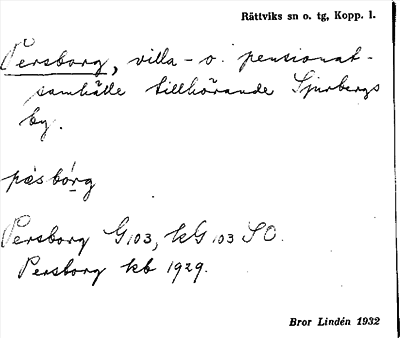 Rättviks sn o. tg, Kopp. l.
Persborg, villa- o. pensionat-
samhälle tillhörande Sjurbergs
by.
pæsbórg
Persborg G103, kG 103 SO.
Persborg kb 1929.
Bror Lindén 1932